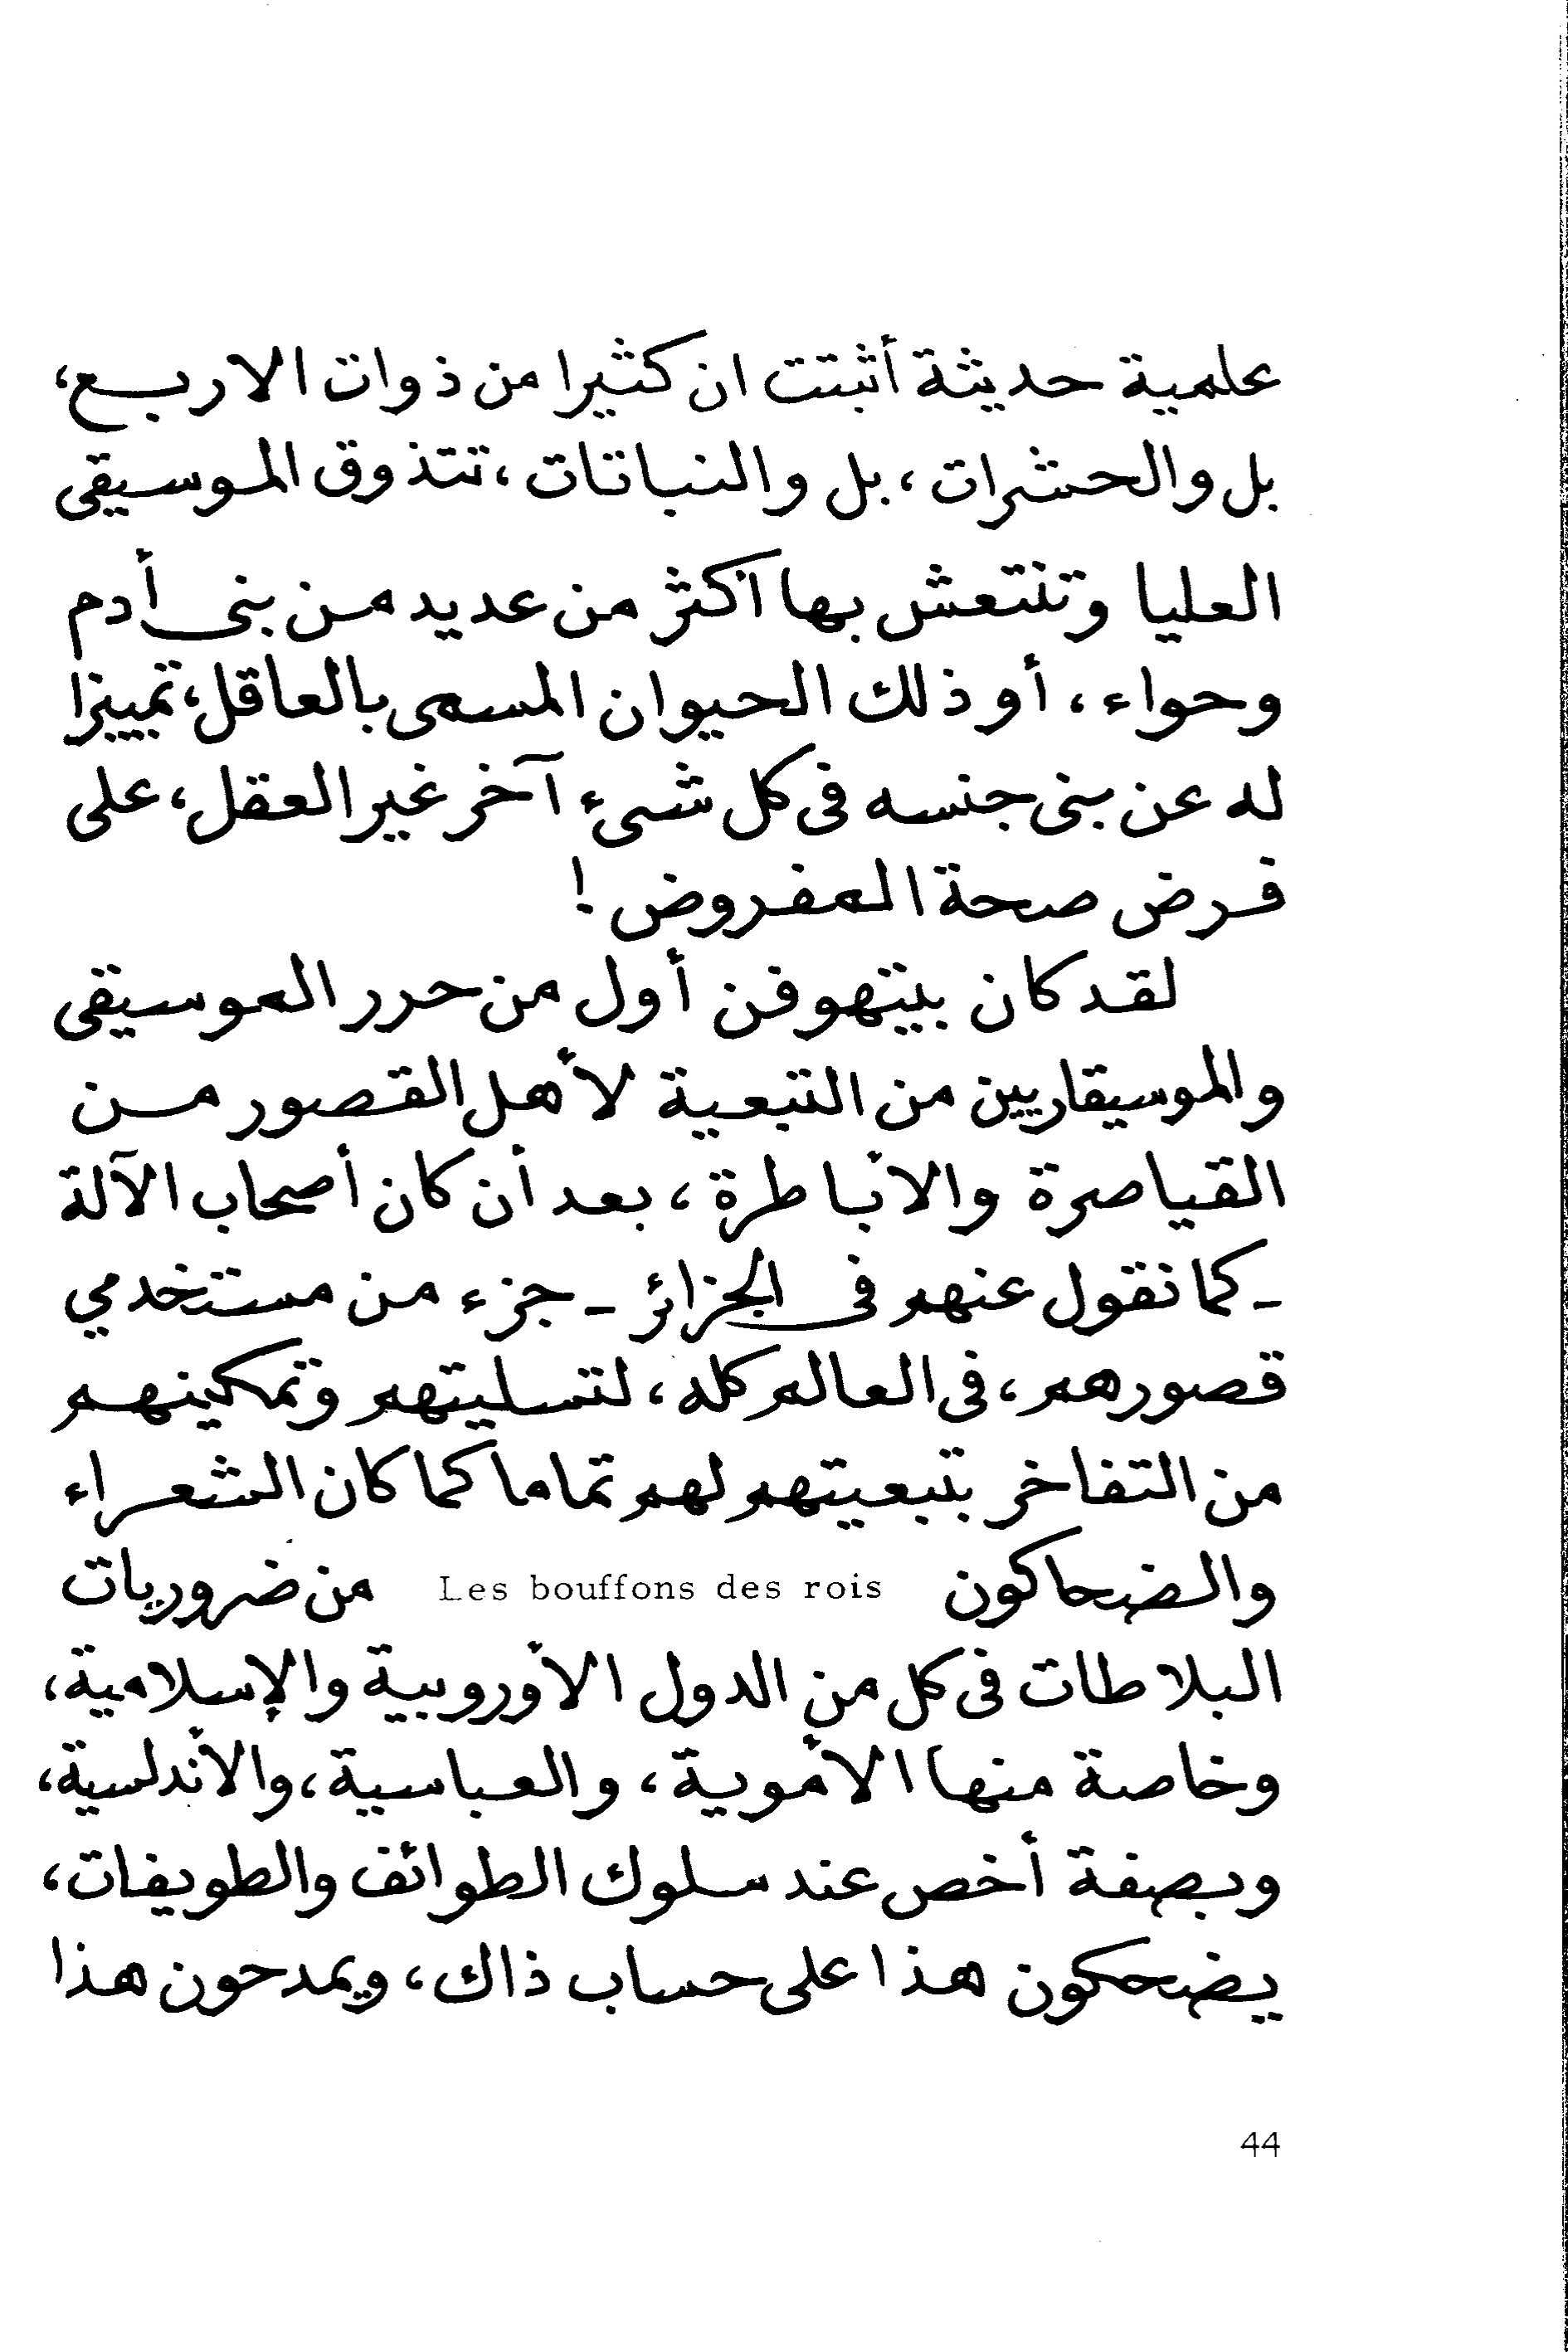 علمية حديثة أثبتت ان كثيرا من ذوات الاربع،
بل والحشرات، بل والنباتات، تتذوق الموسيقى
العليا وتنتعش بها اكثر من عديد من بنى أدم
وحواء، أو ذلك الحيوان المسمى بالعاقل، تمييزا
له عن بنى جنسه فى كل شىء آخر غير العقل، على
فرض صحة المفروض!
لقد كان بيتهوفن أول من حرر الموسيقى
والموسيقاريين من التبعية لأهل القصور من
القياصرة والأباطرة، بعد أن كان أصحاب الآلة
- كما نقول عنهم فى الجزائر - جزء من مستخدمي
قصورهم، فى العالم كله، لتسليتهم وتمكينهم
من التفاخر بتبعيتهم لهم تماما كما كان الشعراء
والضحاكون Les bouffons des rois من ضروريات
البلاطات فى كل من الدول الأوروبية والإسلامية،
وخاصة منها الأموية، والعباسية، والأندلسية،
وبصفة أخص عند سلوك الطوائف والطويفات،
يضحكون هذا على حساب ذاك، ويمدحون هذا
44